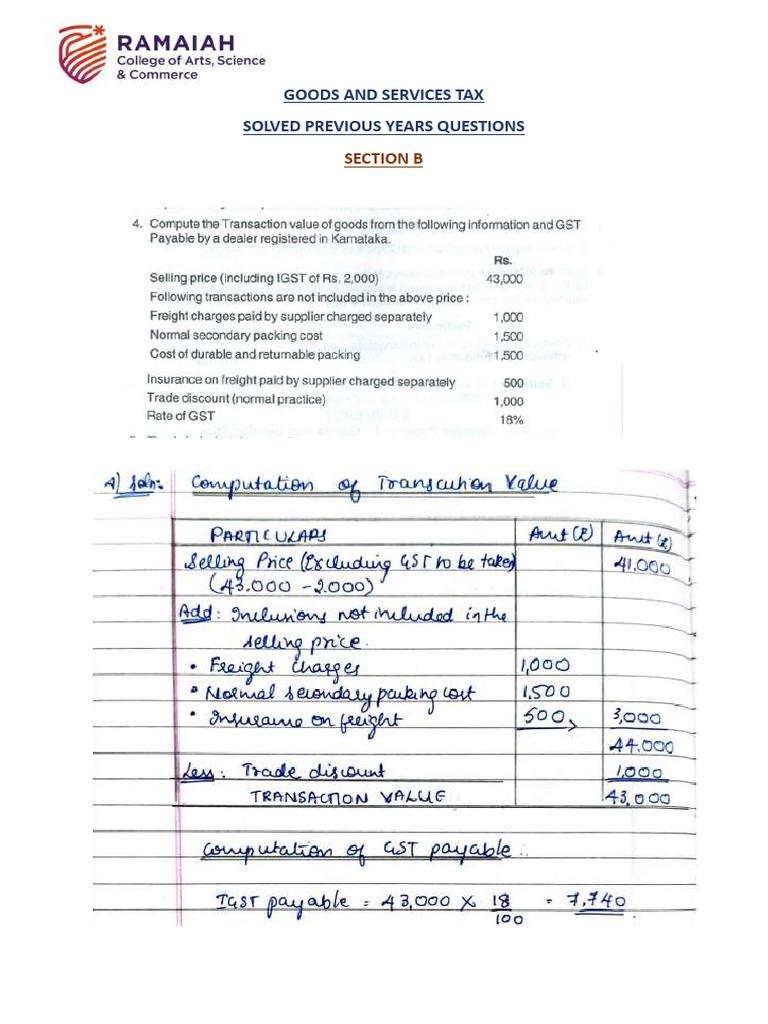 RAMAIAH
College of Arts, Science
& Commerce
GOODS AND SERVICES TAX
SOLVED PREVIOUS YEARS QUESTIONS
SECTION B
4. Compute the Transaction value of goods from the following information and GST
Payable by a dealer registered in Karnataka.
Rs.
Selling price (including IGST of Rs. 2,000) 43,000
Following transactions are not included in the above price :
Freight charges paid by supplier charged separately 1,000
Normal secondary packing cost 1,500
Cost of durable and returnable packing 1,500
Insurance on freight paid by supplier charged separately 500
Trade discount (normal practice) 1,000
Rate of GST 18%
4) Soln:- Computation of Transcution Value
PARTICULARS Amt (₹) Amt (₹)
Selling Price (Excluding GST to be taken) 41,000
(43.000 - 2.000)
Add: Inclusions not included in the
selling price.
• Freight Charges 1,000
• Normal secondary packing cost 1,500
• Insurance on freight 500 3,000
44.000
Less: Trade discount 1,000
TRANSACTION VALUE 43,000
Computation of GST payable:
IGST payable = 43,000 × 18/100 = 7,740